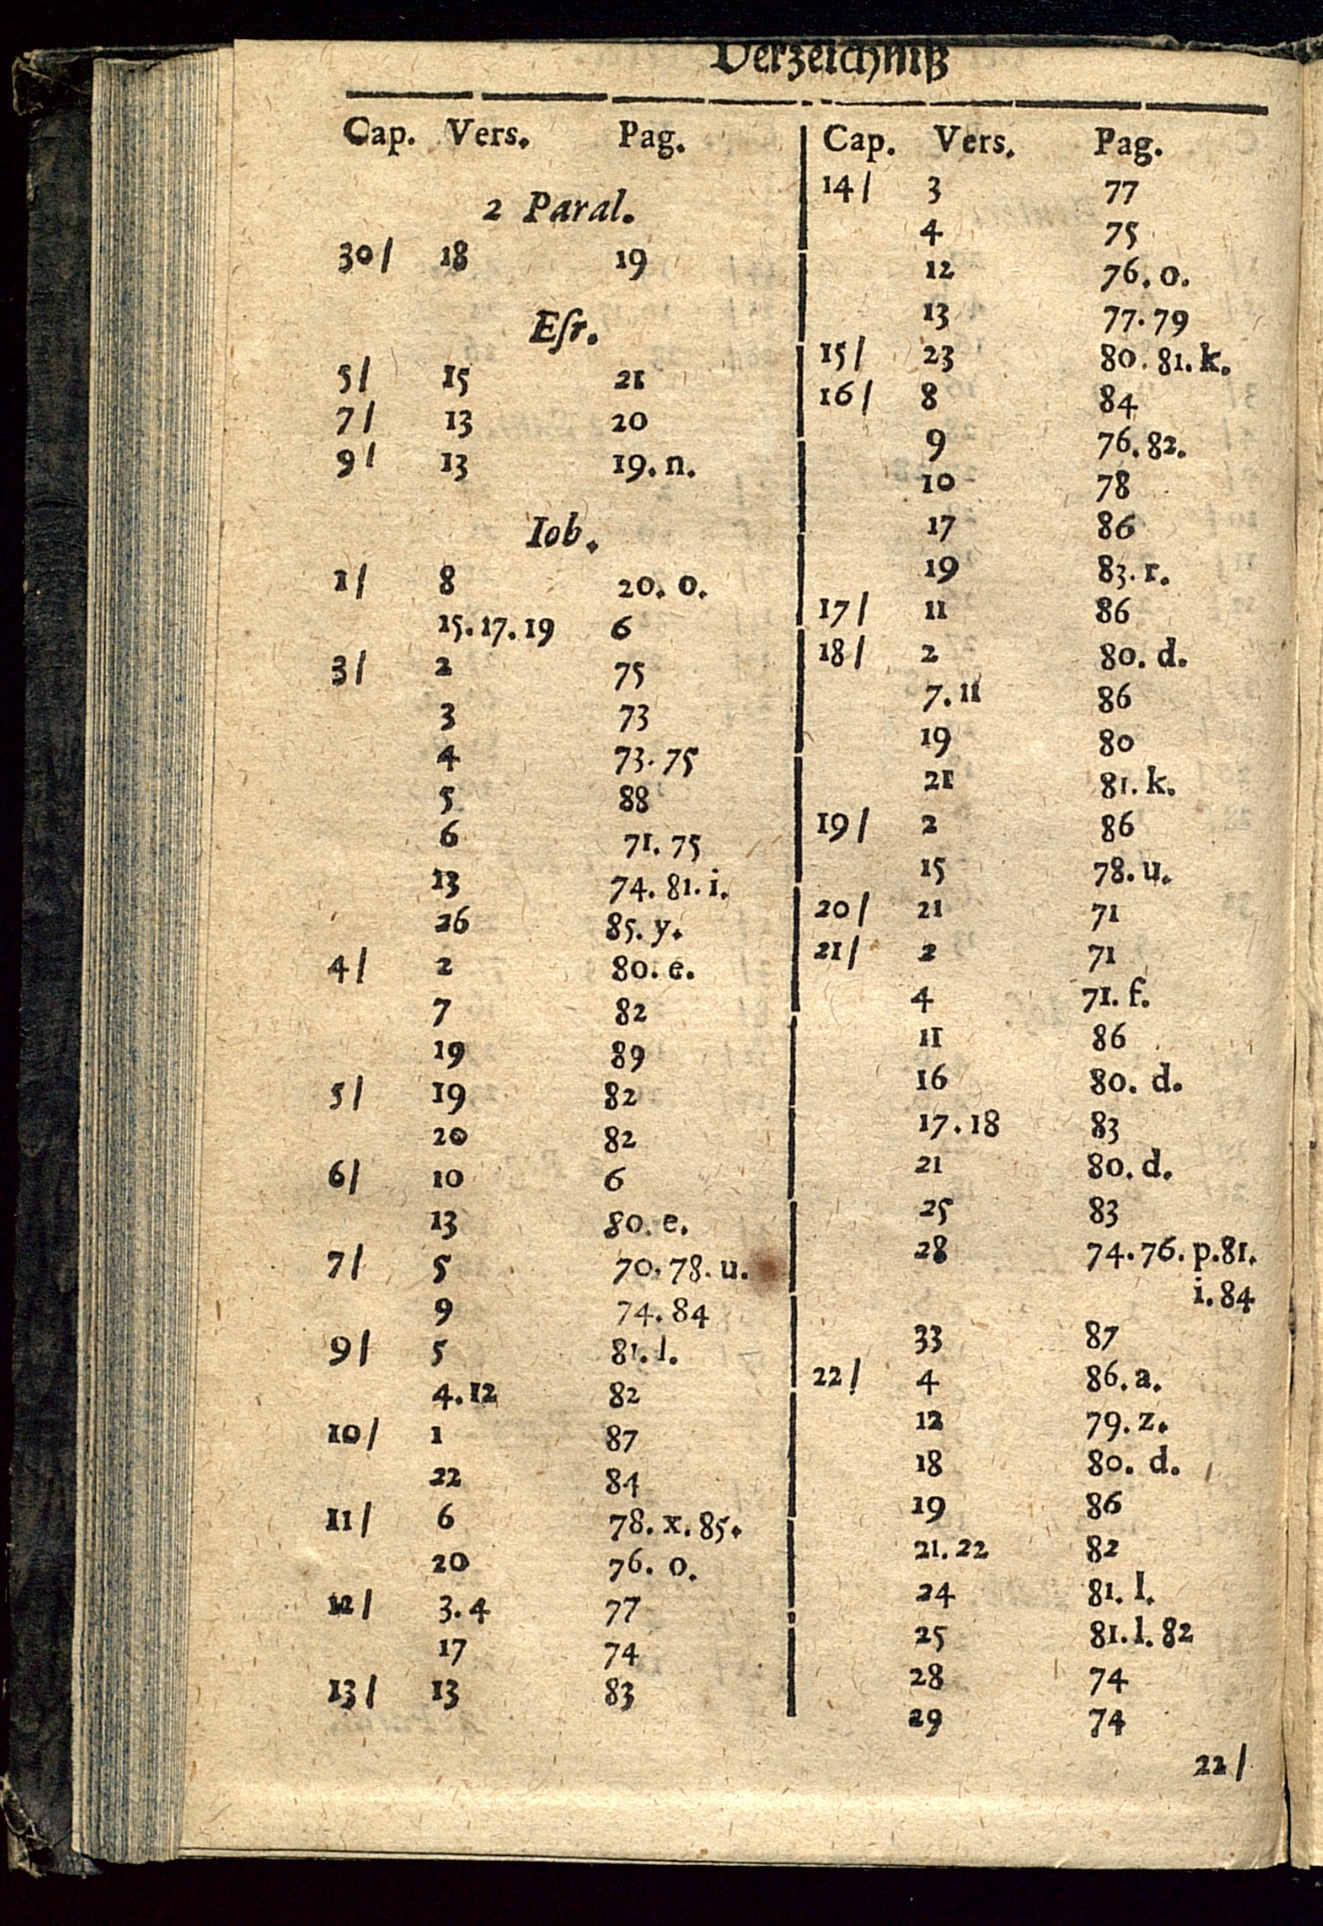 Verzeichniß
Cap. Vers. Pag.
2 Paral.
30/ 18 19
Eſr.
5/ 15 21
7/ 13 20
9/ 13 19. n.
Iob.
1/ 8 20. o.
15. 17. 19 6
3/ 2 75
3 73
4 73. 75
5 88
6 71. 75
13 74. 81. i.
26 85. y.
4/ 2 80. e.
7 82
19 89
5/ 19 82
20 82
6/ 10 6
13 80. e.
7/ 5 70. 78. u.
9 74. 84
9/ 5 81. l.
4. 12 82
10/ 1 87
22 84
11/ 6 78. x. 85.
20 76. o.
12/ 3. 4 77
17 74
13/ 13 83
Cap. Vers. Pag.
14/ 3 77
4 75
12 76. o.
13 77. 79
15/ 23 80. 81. k.
16/ 8 84
9 76. 82.
10 78
17 86
19 83. r.
17/ 11 86
18/ 2 80. d.
7. 11 86
19 80
21 81. k.
19/ 2 86
15 78. u.
20/ 21 71
21/ 2 71
4 71. f.
11 86
16 80. d.
17. 18 83
21 80. d.
25 83
28 74. 76. p. 81.
i. 84
33 87
22/ 4 86. a.
12 79. z.
18 80. d.
19 86
21. 22 82
24 81. l.
25 81. l. 82
28 74
29 74
22/